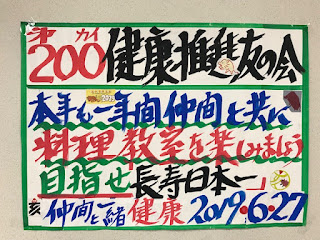 才 カイ
200 健康推進友の会
本年も一年間仲間と共に
料理教室を楽しみましょう
目指せ長寿日本一
亥 仲間と一緒 健康 2019・6・27